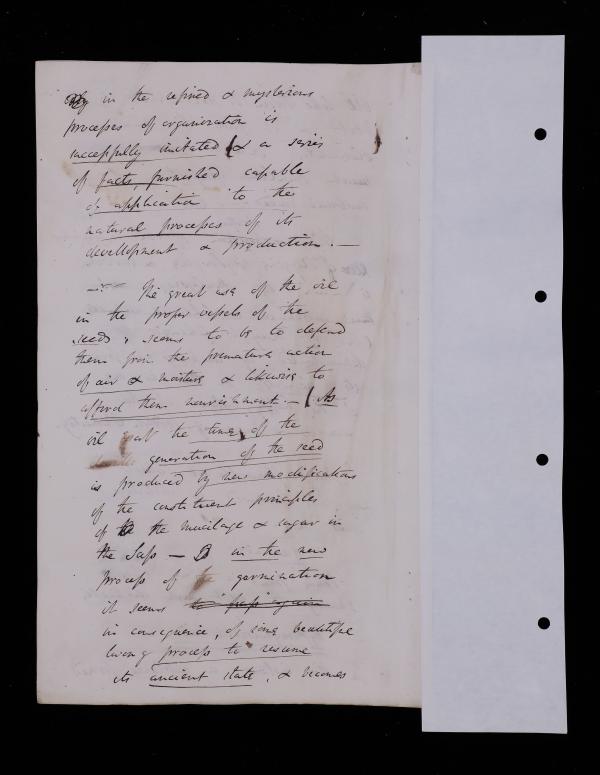 in the refined & mysterious
processes of organization is
successfully imitated & a series
of facts, furnished capable
of application to the
natural processes of its
development & production. —
— The great use of the oil
in the proper vessels of the
seeds, seems to be to defend
them from the premature action
of air & moisture & likewise to
afford them nourishment. — As
oil at the time of the
generation of the seed
is produced by new modifications
of the constituent principles
of the mucilage & sugar in
the Sap — in the new
process of germination
it seems to pass again
in consequence, of some beautiful
living process to resume
its ancient state, & becomes